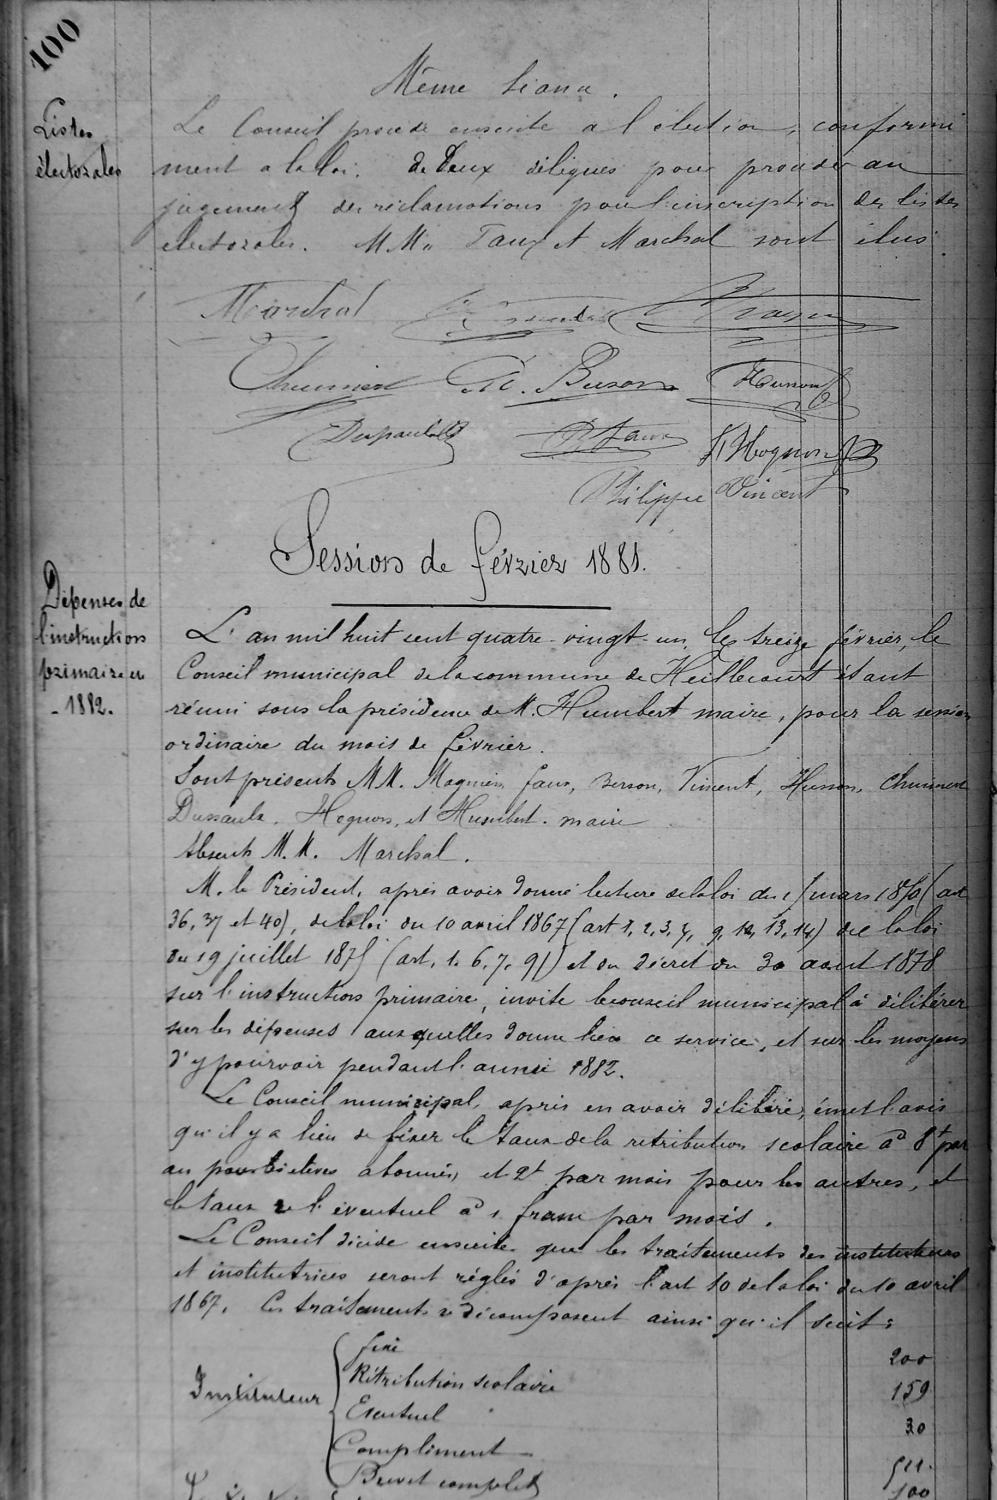 100
Même Séance.
Listes
électorales
Le Conseil procède ensuite à l'élection, conformé
ment à la loi, de deux délégués pour procéder au
jugement des réclamations pour l'inscription des listes
électorales. MM. Faux et Marchal sont élus
Marchal
Chuminert M. Buson Husson
Dussaulx Faux Hognon
Philippe Vincent
Session de février 1881.
Dépenses de
l'instruction
primaire en
- 1882.
L'an mil huit cent quatre-vingt-un, le treize février, le
Conseil municipal de la commune de Heillecourt étant
réuni sous la présidence de M. Humbert maire, pour la session
ordinaire du mois de février.
Sont présents MM. Magnien, Faux, Berson, Vincent, Husson,
Dussaulx, Hognon, et Humbert. maire
Absents M.M. Marchal.
M. le Président, après avoir donné lecture de la loi du mars 1850 (art
36, 37 et 40), de la loi du 10 avril 1867 (art 1, 2, 3, 4, 9, 12, 13, 14) de la loi
du 19 juillet 1875 (art. 1. 6, 7, 9) et du décret du 30 aout 1878
sur l'instruction primaire, invite le conseil municipal à délibérer
sur les dépenses auxquelles donne lieu ce service, et sur les moyens
d'y pourvoir pendant l'année 1882.
Le Conseil municipal, après en avoir délibéré, émet l'avis
qu'il y a lieu de fixer le taux de la rétribution scolaire à 8f par
an pour les élèves abonnés, et 2f par mois pour les autres, et
le taux de l'éventuel à 1 franc par mois.
Le Conseil décide ensuite que les traitements des instituteurs
et institutrices seront réglés d'après l'art 10 de la loi du 10 avril
1867. Ces traitements se décomposent ainsi qu'il suit:
Instituteur
fixe 200
Rétribution scolaire 159
Eventuel 30
Compliment 511.
Brevet complet 100